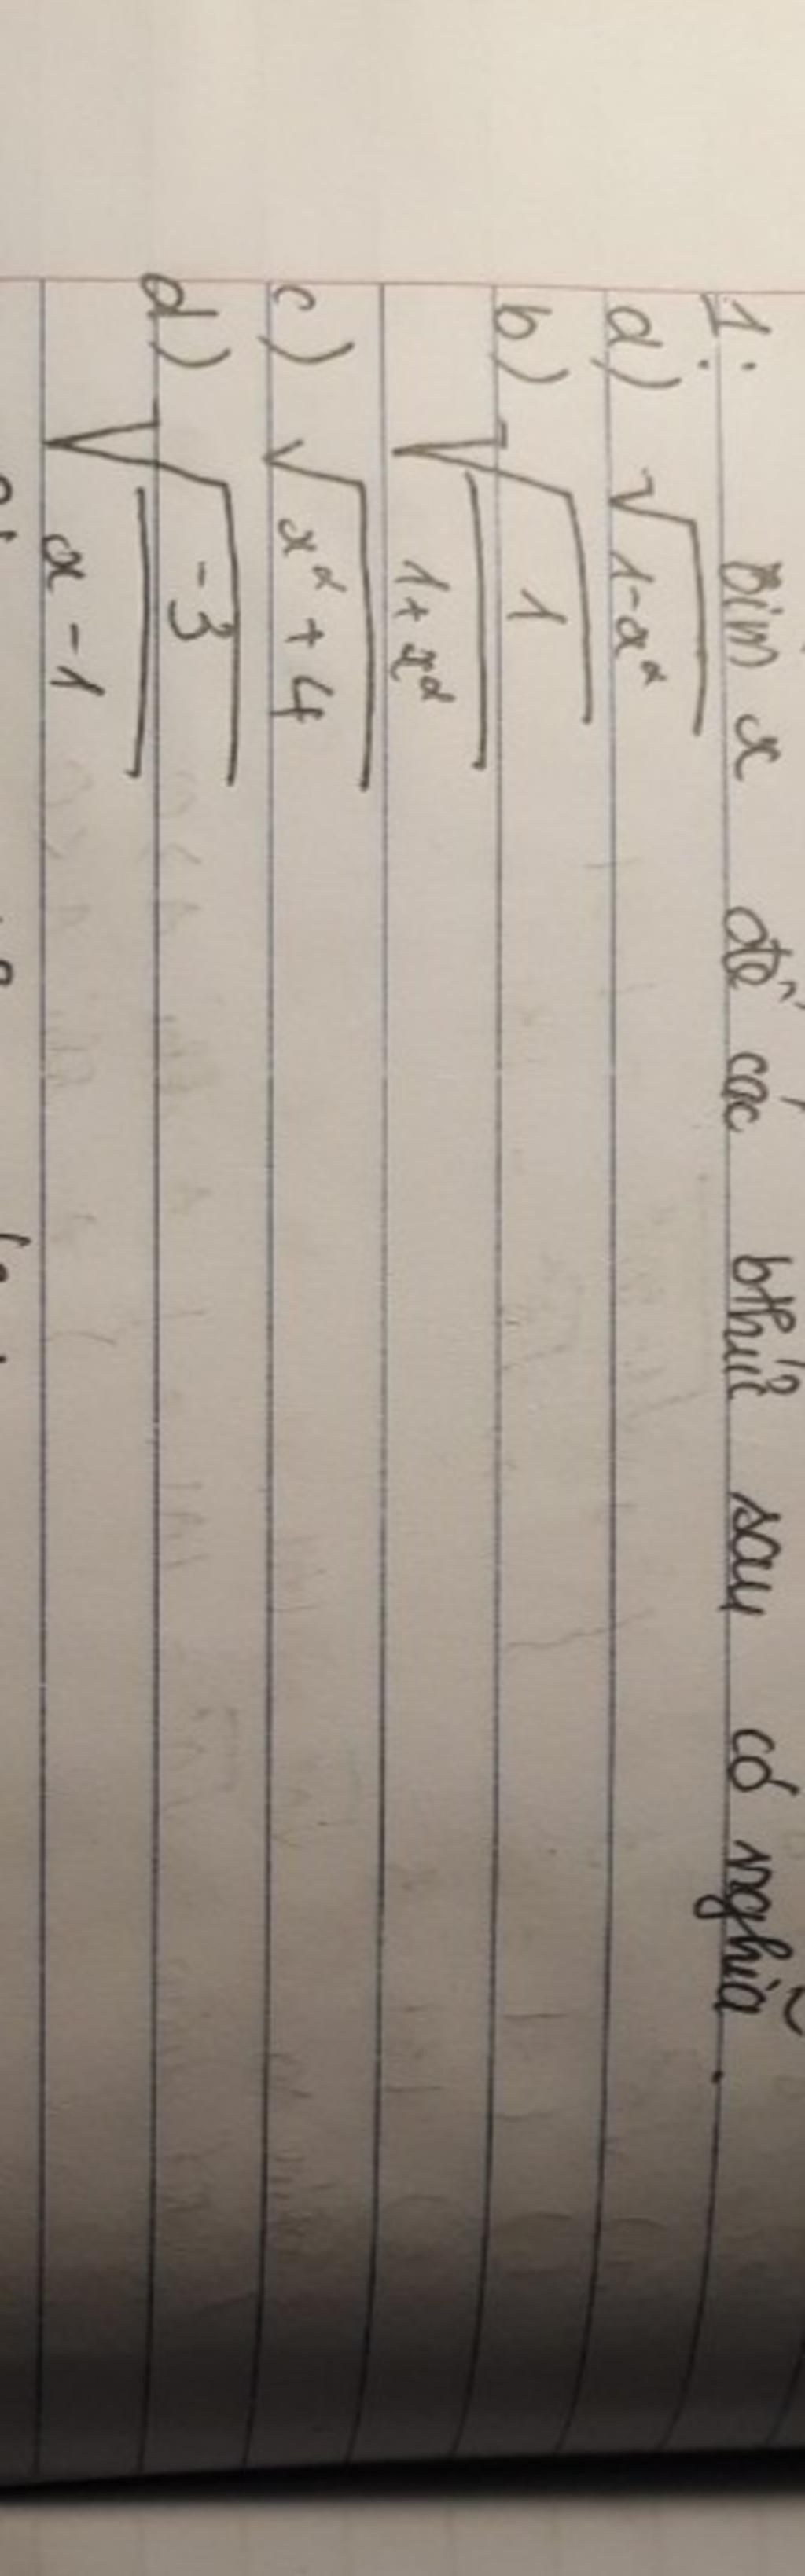 1: Tìm x để các bthức sau có nghĩa.
a) √(1-x²)
b) √(1/(1+x²))
c) √(x²+4)
d) √(-3/(x-1))